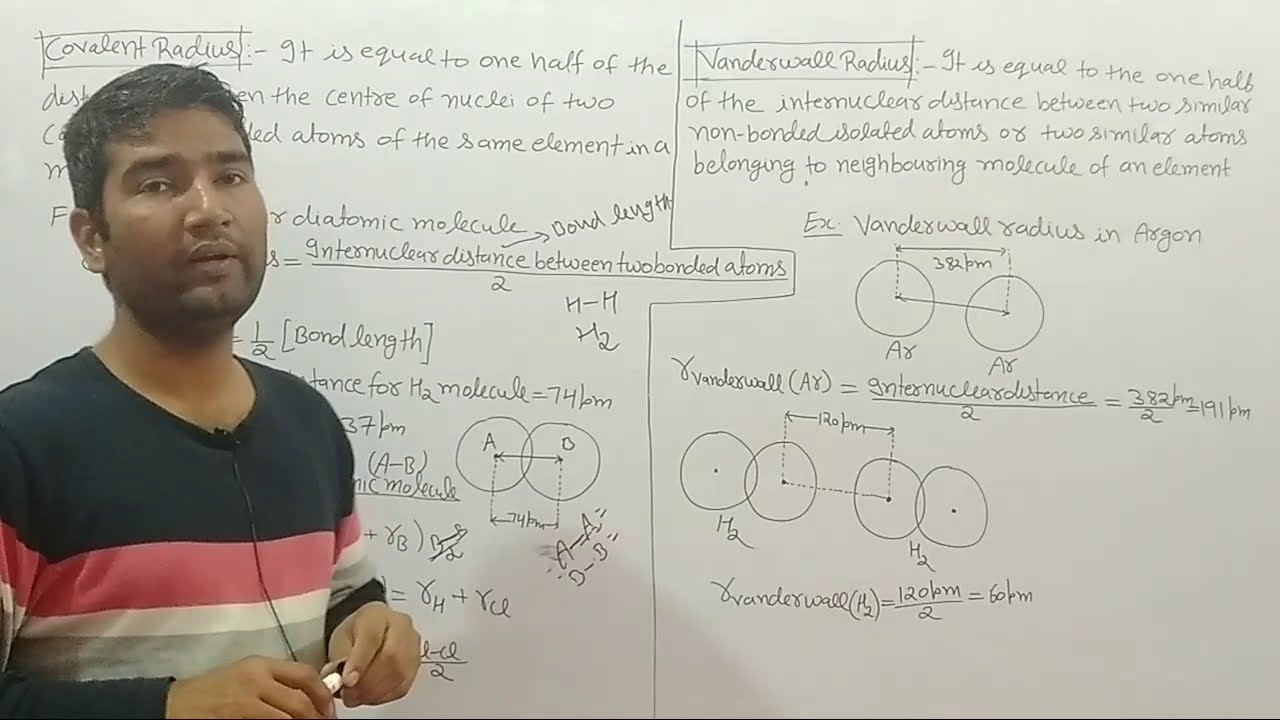 Covalent Radius :- It is equal to one half of the
en the centre of nuclei of two
ded atoms of the same element in a
r diatomic molecule → Bond length
= Internuclear distance between two bonded atoms
2
H-H
H2
= 1/2 [Bond length]
tance for H2 molecule = 74pm
37pm
A B
(A-B)
mic molecule
74pm
+ rB)
A-A
B-B
= rH + rCl
l-Cl
2
Vanderwall Radius :- It is equal to the one half
of the internuclear distance between two similar
non-bonded isolated atoms or two similar atoms
belonging to neighbouring molecule of an element
Ex: Vanderwall radius in Argon
382pm
Ar Ar
rvanderwall (Ar) = Internuclear distance / 2 = 382pm / 2 = 191pm
120pm
H2 H2
rvanderwall (H2) = 120pm / 2 = 60pm